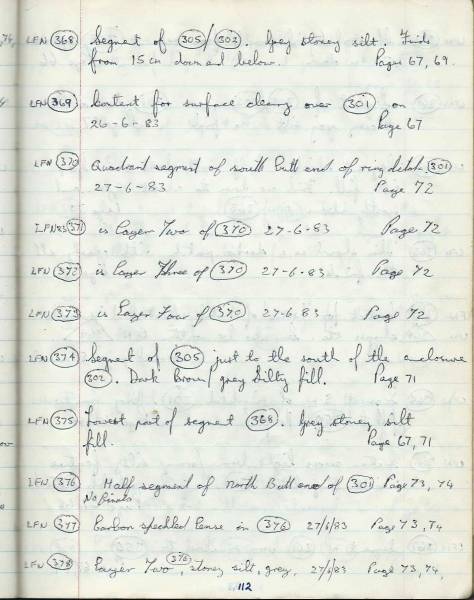 LFN 368 Segment of 305/302. Grey stoney silt. Finds
from 15cm down and below. Pages 67, 69.
LFN 369 Context for surface cleany over 301 on
26-6-83 Page 67
LFN 370 Quadrant segment of south butt end of ring ditch 301
27-6-83 Page 72
LFN83 371 is Layer Two of 370 27-6-83 Page 72
LFN 372 is Layer Three of 370 27-6-83 Page 72
LFN 373 is Layer Four of 370 27-6-83 Page 72
LFN 374 Segment of 305 just to the south of the enclosure
302. Dark Brown/grey Silty fill. Page 71
LFN 375 Lowest part of segment 368. Grey stoney silt
fill. Page 67, 71
LFN 376 Half segment of North Butt end of 301 Page 73, 74
No Finds
LFN 377 Carbon speckled lense in 376 27/6/83 Page 73, 74
LFN 378 Layer Two 376, stoney silt, grey, 27/6/83 Page 73, 74,
112